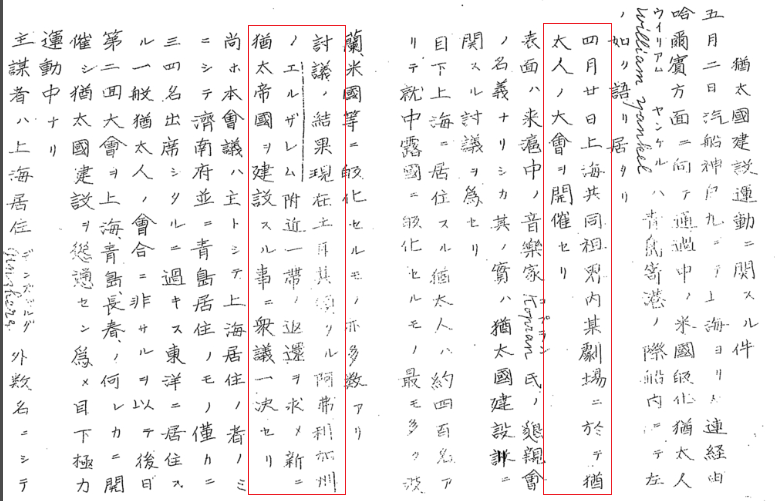 猶太國建設運動ニ関スル件
五月二日汽船神戸丸ニテ上海ヨリ大連経由
哈爾賓方面ニ向テ通過中ノ米國皈化猶太人
ウィリアム ヤンケル
William Yankel ハ青島寄港ノ際船内ニテ左
ノ如ク語リ居タリ
四月廿日上海共同租界内某劇場ニ於テ猶
太人ノ大會ヲ開催セリ
表面ハ来滬中ノ音樂家氏ノ懇親會
ノ名義ナリシカ其ノ實ハ猶太國建設計ニ
関スル討議ヲ為セリ
目下上海ニ居住スル猶太人ハ約四百名ア
リテ就中露國ニ皈化セルモノ最モ多ク波
蘭米國等ニ皈化セルモノ亦多数アリ
討議ノ結果現在土耳其領タル阿弗利加州
ノエルザレム附近一帯ノ返還ヲ求メ新ニ
猶太帝國ヲ建設スル事ニ衆議一決セリ
尚ホ本會議ハ主トシテ上海居住ノ者ノミ
ニシテ濟南府並ニ青島居住ノモノハ僅カニ
三四名出席シタルニ過キス東洋ニ居住ス
ル一般猶太人ノ會合ニ非サルヲ以テ後日
第二回大會ヲ上海青島長春ノ何レカニ開
催シ猶太國建設ヲ慫慂セン為メ目下極力
運動中ナリ
主謀者ハ上海居住 外数名ニシテ